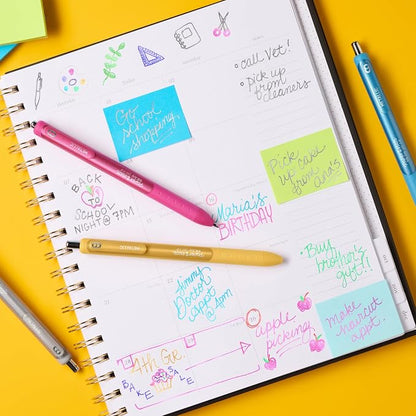 call Vet!
Pick up
from
cleaners
Go
School
Shopping
Pick cake
up from
ana's
BACK
to
SCHOOL
NIGHT @ 7PM
Maria's
BIRTHDAY
Buy
brother's
gift!!
Jimmy
Doctor
appt
@ 4pm
apple
picking
make
haircut
appt.
4th Gr.
BAKE SALE